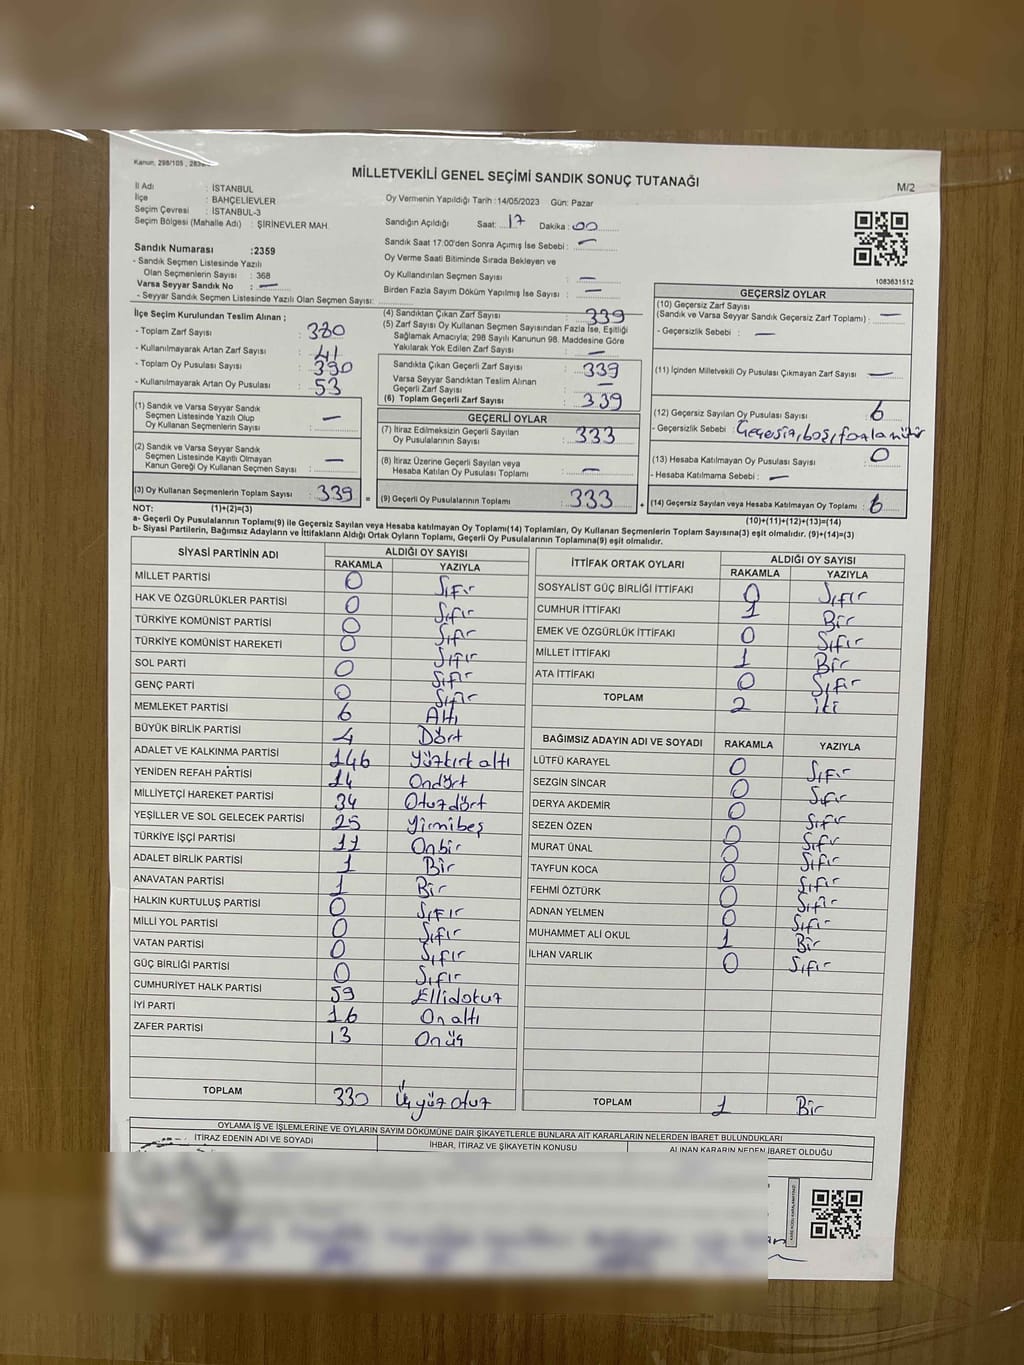 Kanun, 298/105
MİLLETVEKİLİ GENEL SEÇİMİ SANDIK SONUÇ TUTANAĞI
M/2
İl Adı : İSTANBUL
İlçe : BAHÇELİEVLER
Seçim Çevresi : İSTANBUL-3
Seçim Bölgesi (Mahalle Adı) : ŞİRİNEVLER MAH.
Sandık Numarası :2359
- Sandık Seçmen Listesinde Yazılı
Olan Seçmenlerin Sayısı : 368
Varsa Seyyar Sandık No : —
- Seyyar Sandık Seçmen Listesinde Yazılı Olan Seçmen Sayısı:
Oy Vermenin Yapıldığı Tarih :14/05/2023 Gün: Pazar
Sandığın Açıldığı Saat: 17 Dakika : 00
Sandık Saat 17.00'den Sonra Açılmış İse Sebebi : —
Oy Verme Saati Bitiminde Sırada Bekleyen ve
Oy Kullandırılan Seçmen Sayısı : —
Birden Fazla Sayım Döküm Yapılmış İse Sayısı : —
1083631512
İlçe Seçim Kurulundan Teslim Alınan ;
- Toplam Zarf Sayısı : 380
- Kullanılmayarak Artan Zarf Sayısı : 41
- Toplam Oy Pusulası Sayısı : 390
- Kullanılmayarak Artan Oy Pusulası : 53
(1) Sandık ve Varsa Seyyar Sandık
Seçmen Listesinde Yazılı Olup
Oy Kullanan Seçmenlerin Sayısı : —
(2) Sandık ve Varsa Seyyar Sandık
Seçmen Listesinde Kayıtlı Olmayan
Kanun Gereği Oy Kullanan Seçmen Sayısı : —
(3) Oy Kullanan Seçmenlerin Toplam Sayısı : 339 =
(4) Sandıktan Çıkan Zarf Sayısı : 339
(5) Zarf Sayısı Oy Kullanan Seçmen Sayısından Fazla İse, Eşitliği
Sağlamak Amacıyla; 298 Sayılı Kanunun 98. Maddesine Göre
Yakılarak Yok Edilen Zarf Sayısı : —
Sandıkta Çıkan Geçerli Zarf Sayısı : 339
Varsa Seyyar Sandıktan Teslim Alınan
Geçerli Zarf Sayısı : —
(6) Toplam Geçerli Zarf Sayısı : 339
GEÇERLİ OYLAR
(7) İtiraz Edilmeksizin Geçerli Sayılan
Oy Pusulalarının Sayısı : 333
(8) İtiraz Üzerine Geçerli Sayılan veya
Hesaba Katılan Oy Pusulası Toplamı : —
(9) Geçerli Oy Pusulalarının Toplamı : 333 +
GEÇERSİZ OYLAR
(10) Geçersiz Zarf Sayısı
(Sandık ve Varsa Seyyar Sandık Geçersiz Zarf Toplamı) : —
- Geçersizlik Sebebi : —
(11) İçinden Milletvekili Oy Pusulası Çıkmayan Zarf Sayısı : —
(12) Geçersiz Sayılan Oy Pusulası Sayısı : 6
- Geçersizlik Sebebi : Geçersiz, boş, fazla mühür
(13) Hesaba Katılmayan Oy Pusulası Sayısı : 0
- Hesaba Katılmama Sebebi : —
(14) Geçersiz Sayılan veya Hesaba Katılmayan Oy Toplamı : 6
NOT: (1)+(2)=(3)
(10)+(11)+(12)+(13)=(14)
a- Geçerli Oy Pusulalarının Toplamı(9) ile Geçersiz Sayılan veya Hesaba Katılmayan Oy Toplamı(14) Toplamları, Oy Kullanan Seçmenlerin Toplam Sayısına(3) eşit olmalıdır. (9)+(14)=(3)
b- Siyasi Partilerin, Bağımsız Adayların ve İttifakların Aldığı Ortak Oyların Toplamı, Geçerli Oy Pusulalarının Toplamına(9) eşit olmalıdır.
SİYASİ PARTİNİN ADI ALDIĞI OY SAYISI
RAKAMLA YAZIYLA
MİLLET PARTİSİ 0 Sıfır
HAK VE ÖZGÜRLÜKLER PARTİSİ 0 Sıfır
TÜRKİYE KOMÜNİST PARTİSİ 0 Sıfır
TÜRKİYE KOMÜNİST HAREKETİ 0 Sıfır
SOL PARTİ 0 Sıfır
GENÇ PARTİ 0 Sıfır
MEMLEKET PARTİSİ 6 Altı
BÜYÜK BİRLİK PARTİSİ 4 Dört
ADALET VE KALKINMA PARTİSİ 146 Yüzkırk altı
YENİDEN REFAH PARTİSİ 14 Ondört
MİLLİYETÇİ HAREKET PARTİSİ 34 Otuzdört
YEŞİLLER VE SOL GELECEK PARTİSİ 25 Yirmibeş
TÜRKİYE İŞÇİ PARTİSİ 11 Onbir
ADALET BİRLİK PARTİSİ 1 Bir
ANAVATAN PARTİSİ 1 Bir
HALKIN KURTULUŞ PARTİSİ 0 Sıfır
MİLLİ YOL PARTİSİ 0 Sıfır
VATAN PARTİSİ 0 Sıfır
GÜÇ BİRLİĞİ PARTİSİ 0 Sıfır
CUMHURİYET HALK PARTİSİ 59 Ellidokuz
İYİ PARTİ 16 On altı
ZAFER PARTİSİ 13 Onüç
TOPLAM 330 Üçyüz otuz
İTTİFAK ORTAK OYLARI ALDIĞI OY SAYISI
RAKAMLA YAZIYLA
SOSYALİST GÜÇ BİRLİĞİ İTTİFAKI 0 Sıfır
CUMHUR İTTİFAKI 1 Bir
EMEK VE ÖZGÜRLÜK İTTİFAKI 0 Sıfır
MİLLET İTTİFAKI 1 Bir
ATA İTTİFAKI 0 Sıfır
TOPLAM 2 iki
BAĞIMSIZ ADAYIN ADI VE SOYADI RAKAMLA YAZIYLA
LÜTFÜ KARAYEL 0 Sıfır
SEZGİN SİNCAR 0 Sıfır
DERYA AKDEMİR 0 Sıfır
SEZEN ÖZEN 0 Sıfır
MURAT ÜNAL 0 Sıfır
TAYFUN KOCA 0 Sıfır
FEHMİ ÖZTÜRK 0 Sıfır
ADNAN YELMEN 0 Sıfır
MUHAMMET ALİ OKUL 1 Bir
İLHAN VARLIK 0 Sıfır
TOPLAM 1 Bir
OYLAMA İŞ VE İŞLEMLERİNE VE OYLARIN SAYIM DÖKÜMÜNE DAİR ŞİKAYETLERLE BUNLARA AİT KARARLARIN NELERDEN İBARET BULUNDUKLARI
İTİRAZ EDENİN ADI VE SOYADI İHBAR, İTİRAZ VE ŞİKAYETİN KONUSU ALINAN KARARIN NEDEN İBARET OLDUĞU